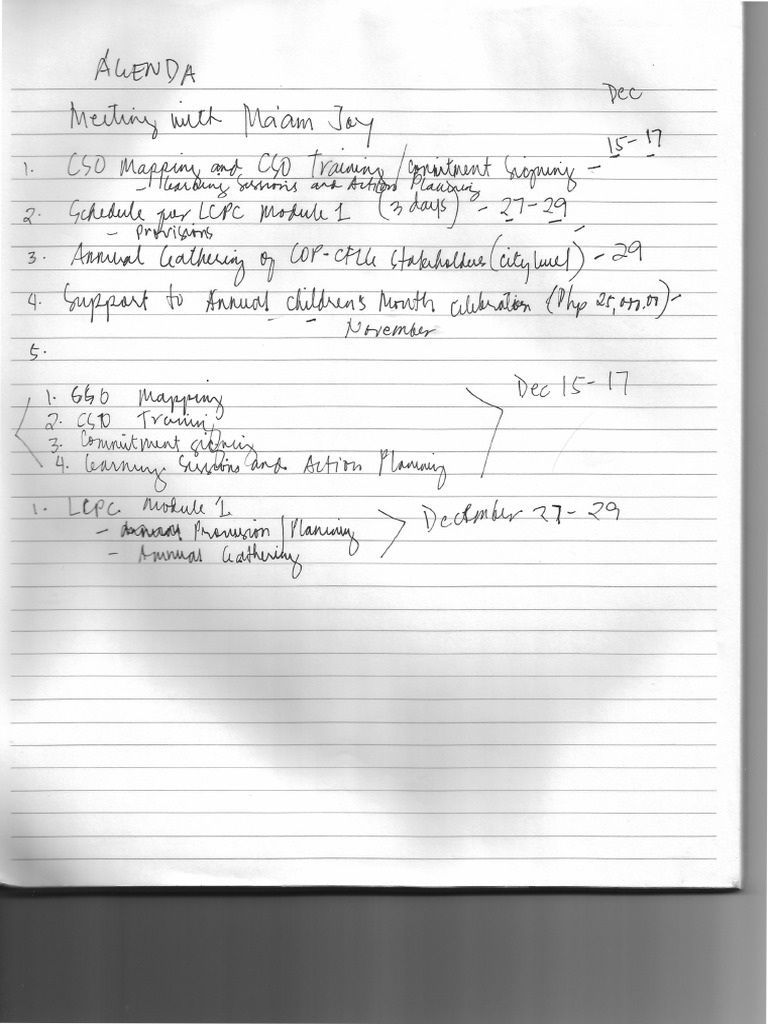 AGENDA
Dec
Meeting with Ma'am Joy
15-17
1. CSO Mapping and CSO Training / Commitment Signing -
- Learning Sessions and Action Planning
2. Schedule per LCPC Module 1 (3 days) - 27-29
- Provisions
3. Annual Gathering of COP-CFLG Stakeholders (city level) - 29
4. Support to Annual Children's Month Celebration (Php 25,000.00) -
November
5.
1. CSO Mapping
Dec 15-17
2. CSO Training
3. Commitment signing
4. Learning Sessions and Action Planning
1. LCPC Module 1
December 27-29
- Provision / Planning
- Annual Gathering